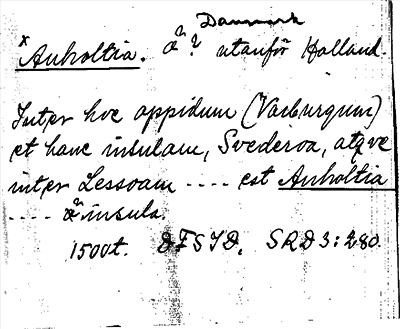 Danmark
x Anholtia. ön? utanför Halland.
Inter hoc oppidum (Varburgum)
et hanc insulam, Svederoa, atqve
inter Lessoam .... est Anholtia
.... ön insula.
1500t. DFSJD, SRD 3:280.